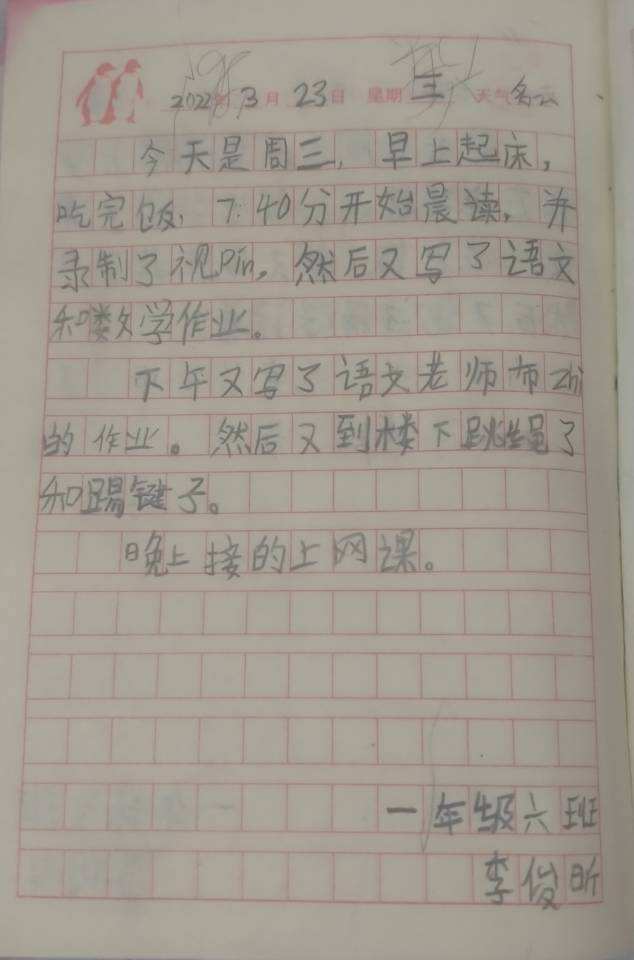 2022年3月23日 星期三 天气多云
今天是周三，早上起床，
吃完饭，7:40分开始晨读，并
录制了视Pin，然后又写了语文
和数学作业。
下午又写了语文老师布zhi
的作业。然后又到楼下跳绳了
和踢键子。
晚上接的上网课。
一年级六班
李俊昕